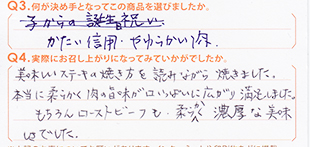 Q3.何が決め手となってこの商品を選びましたか。
子からの誕生祝い.
かたい信用・やわらかい肉.
Q4.実際にお召し上がりになってみていかがでしたか。
美味しいステキの焼き方を読みながら焼きました。
本当に柔らかく肉の旨味が口いっぱいに広がり満足しました。
もちろんローストビーフも.柔らかく濃厚な美味
しさでした。